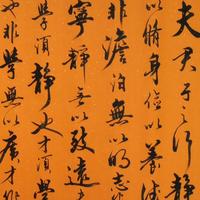 夫君子之行静
以脩身俭以养德
非澹泊無以明志
寧静無以致遠
学須静也才須學
也非學無以廣才非